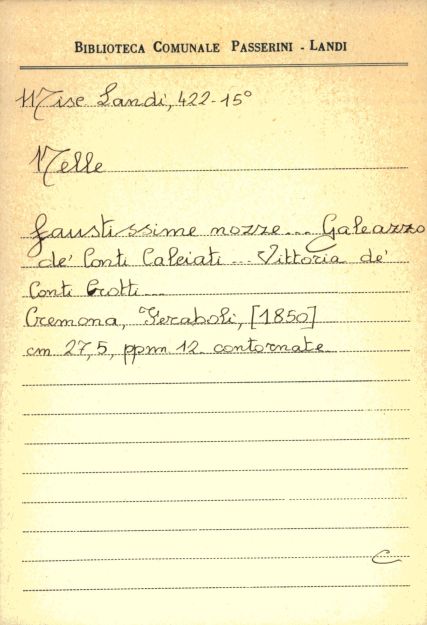 BIBLIOTECA COMUNALE PASSERINI - LANDI
Misc. Landi, 422-15°
Nelle
faustissime nozze... Galeazzo
de' Conti Calciati... Vittoria de'
Conti Crotti...
Cremona, Feraboli, [1850]
cm 27,5, ppnn 12 contornate
C